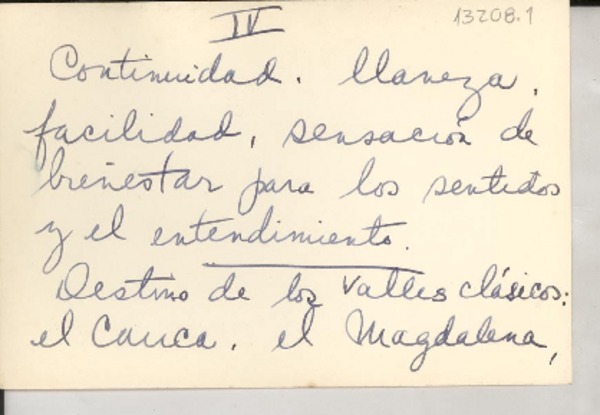 IV
13208.1
Continuidad. llaneza,
facilidad, sensación de
bienestar para los sentidos
y el entendimiento.
Destino de los valles clásicos:
el Cauca, el Magdalena,